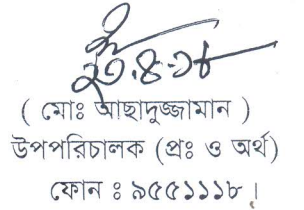 ২৩.৪.১৮
( মোঃ আছাদুজ্জামান )
উপপরিচালক (প্রঃ ও অর্থ)
ফোন ঃ ৯৫৫১১১৮।